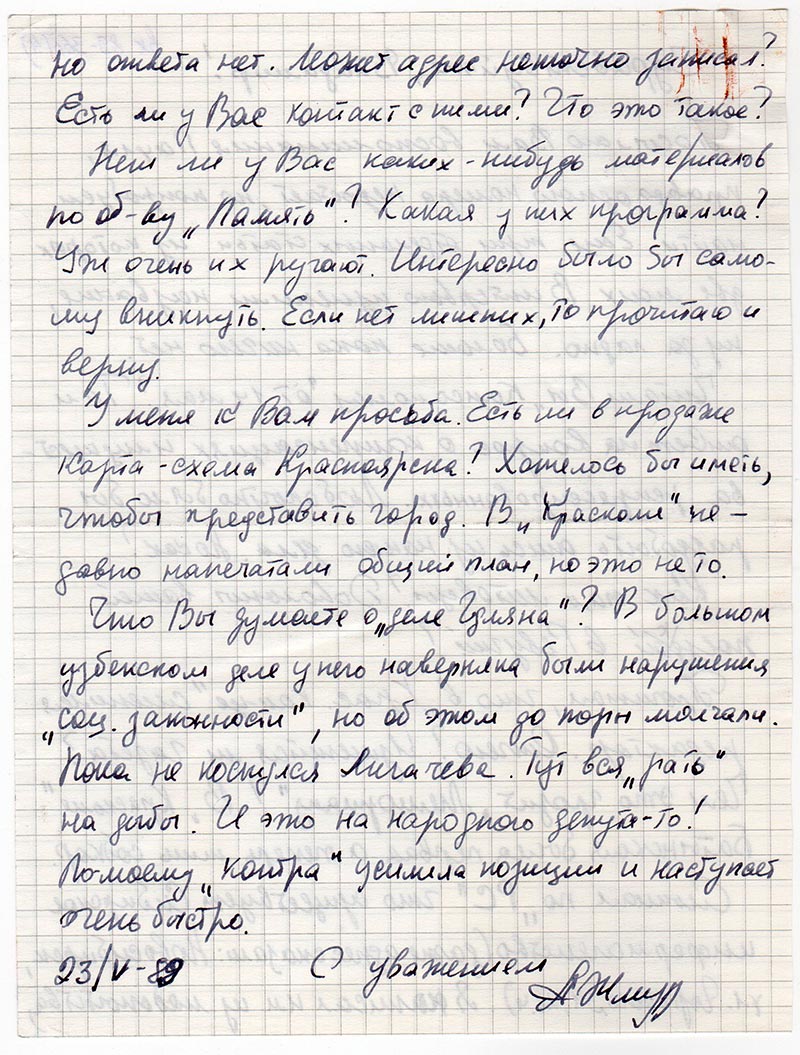 но ответа нет. Может адрес неточно записал?
Есть ли у Вас контакт с ними? Что это такое?
Нет ли у Вас каких-нибудь материалов
по об-ву „Память“? Какая у них программа?
Уж очень их ругают. Интересно было бы само-
му вникнуть. Если нет лишних, то прочитаю и
верну.
У меня к Вам просьба. Есть ли в продаже
карта-схема Красноярска? Хотелось бы иметь,
чтобы представить город. В „Краском“ не-
давно напечатали общий план, но это не то.
Что Вы думаете о „деле Гдляна“? В большом
узбекском деле у него наверняка были нарушения
„соц. законности“, но об этом до поры молчали.
Пока не коснулся Лигачева. Тут вся „рать“
на дыбы. И это на народного депута-то!
По-моему „контра“ усилила позиции и наступает
очень быстро.
23/V-89 С уважением
АЖмур